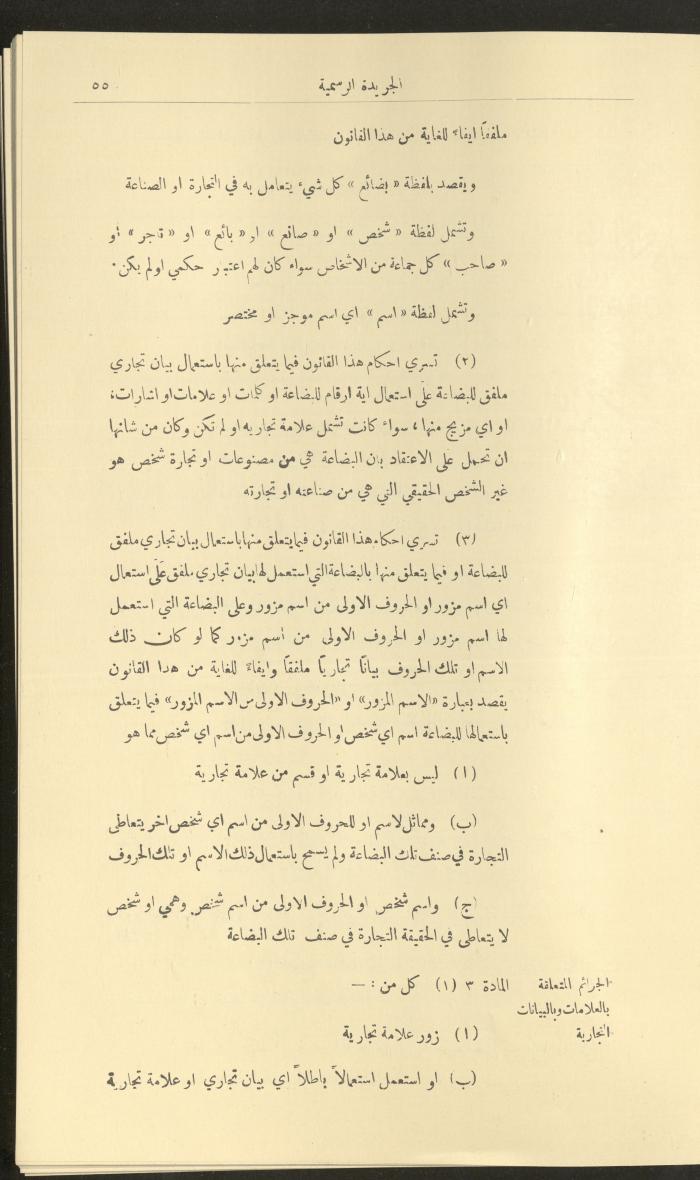 الجريدة الرسمية ٥٥
ملفقاً ايفاءً للغاية من هذا القانون
ويقصد بلفظة « بضائع » كل شيء يتعامل به في التجارة او الصناعة
وتشمل لفظة « شخص » او « صانع » او « بائع » او « تاجر » او
« صاحب » كل جماعة من الاشخاص سواء كان لهم اعتبار حكمي او لم يكن.
وتشمل لفظة « اسم » اي اسم موجز او مختصر
(٢) تسري احكام هذا القانون فيما يتعلق منها باستعمال بيان تجاري
ملفق للبضاعة على استعمال اية ارقام للبضاعة او كلمات او علامات او اشارات،
او اي مزيج منها، سواء كانت تشمل علامة تجارية او لم تكن وكان من شانها
ان تحمل على الاعتقاد بان البضاعة هي من مصنوعات او تجارة شخص هو
غير الشخص الحقيقي التي هي من صناعته او تجارته
(٣) تسري احكام هذا القانون فيما يتعلق منها باستعمال بيان تجاري ملفق
للبضاعة او فيما يتعلق منها بالبضاعة التي استعمل لها بيان تجاري ملفق على استعمال
اي اسم مزور او الحروف الاولى من اسم مزور وعلى البضاعة التي استعمل
لها اسم مزور او الحروف الاولى من اسم مزور كما لو كان ذلك
الاسم او تلك الحروف بياناً تجارياً ملفقاً وايفاءً للغاية من هذا القانون
يقصد بعبارة «الاسم المزور» او «الحروف الاولى من الاسم المزور» فيما يتعلق
باستعمالها للبضاعة اسم اي شخص او الحروف الاولى من اسم اي شخص مما هو
(ا) ليس بعلامة تجارية او قسم من علامة تجارية
(ب) ومماثل لاسم او للحروف الاولى من اسم اي شخص اخر يتعاطى
التجارة في صنف تلك البضاعة ولم يسمح باستعمال ذلك الاسم او تلك الحروف
(ج) واسم شخص او الحروف الاولى من اسم شخص وهمي او شخص
لا يتعاطى في الحقيقة التجارة في صنف تلك البضاعة
الجرائم المتعلقة
بالعلامات وبالبيانات
التجارية
المادة ٣ (١) كل من : —
(ا) زور علامة تجارية
(ب) او استعمل استعمالاً باطلاً اي بيان تجاري او علامة تجارية